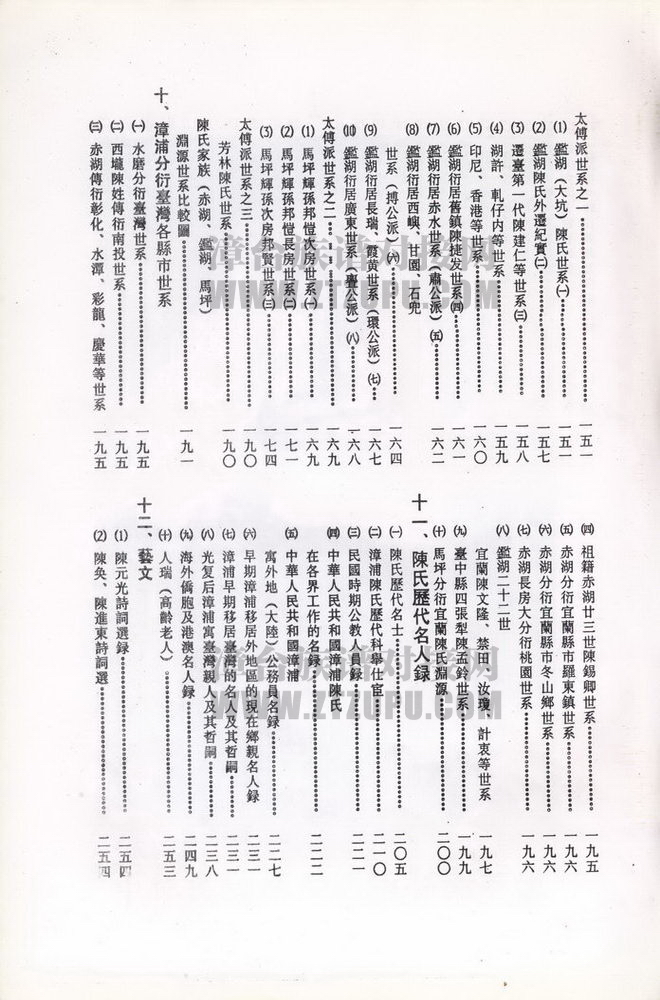 太傅派世系之一
⑴ 鑑湖（大坑）陳氏世系㈠…………一五一
⑵ 鑑湖陳氏外遷紀實㈡…………一五七
⑶ 遷臺第一代陳建仁等世系㈢…………一五八
⑷ 湖許、軋仔内等世系…………一五九
⑸ 印尼、香港等世系…………一六〇
⑹ 鑑湖衍居舊鎮陳捷发世系㈣…………一六一
⑺ 鑑湖衍居赤水世系（肅公派）㈤…………一六二
⑻ 鑑湖衍居西㠘、甘園、石兜
世系（搏公派）㈥…………一六四
⑼ 鑑湖衍居長瑞、霞黄世系（環公派）㈦…………一六七
⑽ 鑑湖衍居廣東世系（亹公派）㈧…………一六八
太傅派世系之二…………一六九
⑴ 馬坪輝孫邦愷次房世系㈠…………一六九
⑵ 馬坪輝孫邦愷長房世系㈡…………一七一
⑶ 馬坪輝孫次房邦賢世系㈢…………一七四
太傅派世系之三…………一九〇
芳林陳氏世系…………一九〇
陳氏家族（赤湖、鑑湖、馬坪）
淵源世系比較圖…………一九一
十、漳浦分衍臺灣各縣市世系
㈠ 水磨分衍臺灣世系…………一九五
㈡ 西壠陳姓傳衍南投世系…………一九五
㈢ 赤湖傳衍彰化、水潭、彩龍、慶華等世系 一九五
㈣ 祖籍赤湖廿三世陳錫卿世系…………一九五
㈤ 赤湖分衍宜蘭縣市羅東鎮世系…………一九六
㈥ 赤湖分衍宜蘭縣市冬山鄉世系…………一九六
㈦ 赤湖長房大分衍桃園世系…………一九六
㈧ 鑑湖二十二世
宜蘭陳文隆、禁田、汝瓊、計衷等世系 一九七
㈨ 臺中縣四張犁陳孟鈴世系…………一九九
㈩ 馬坪分衍宜蘭陳氏淵源…………二〇〇
十一、陳氏歷代名人録
㈠ 陳氏歷代名士…………二〇五
㈡ 漳浦陳氏歷代科舉仕宦…………二一〇
㈢ 民國時期公教人員録…………二二一
㈣ 中華人民共和國漳浦陳氏
在各界工作的名録…………二二二
㈤ 中華人民共和國漳浦
寓外地（大陸）公務員名録…………二二七
㈥ 早期漳浦移居外地區的現在鄉親名人録 二三一
㈦ 漳浦早期移居臺灣的名人及其哲嗣…………二三一
㈧ 光复后漳浦寓臺灣親人及其哲嗣…………二三八
㈨ 海外僑胞及港澳名人録…………二四九
㈩ 人瑞（高齡老人）…………二五三
十二、藝文
⑴ 陳元光詩詞選録…………二五四
⑵ 陳奂、陳進東詩詞選…………二五四
WWW.ZZZUPU.COM